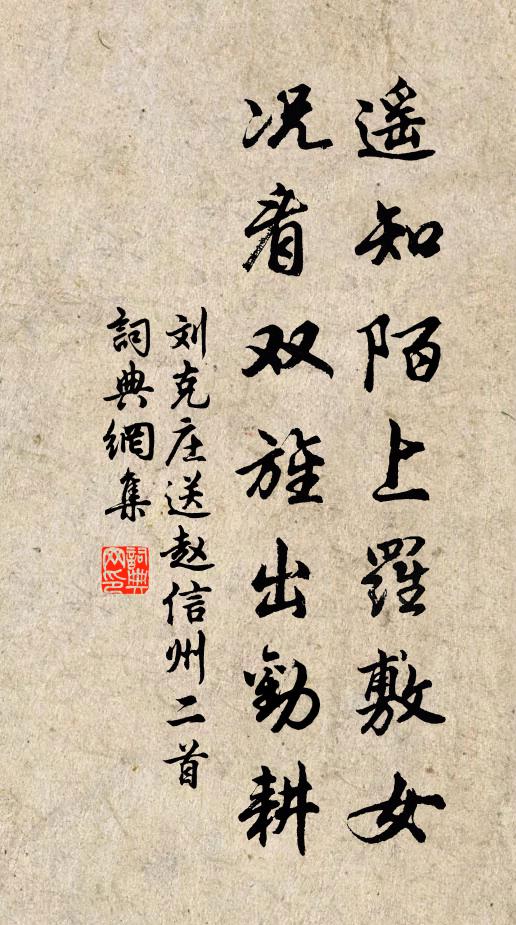 遥知陌上羅敷女
况看双旌出勸耕
刘克庄送赵信州二首
詞典網集
詞典網印